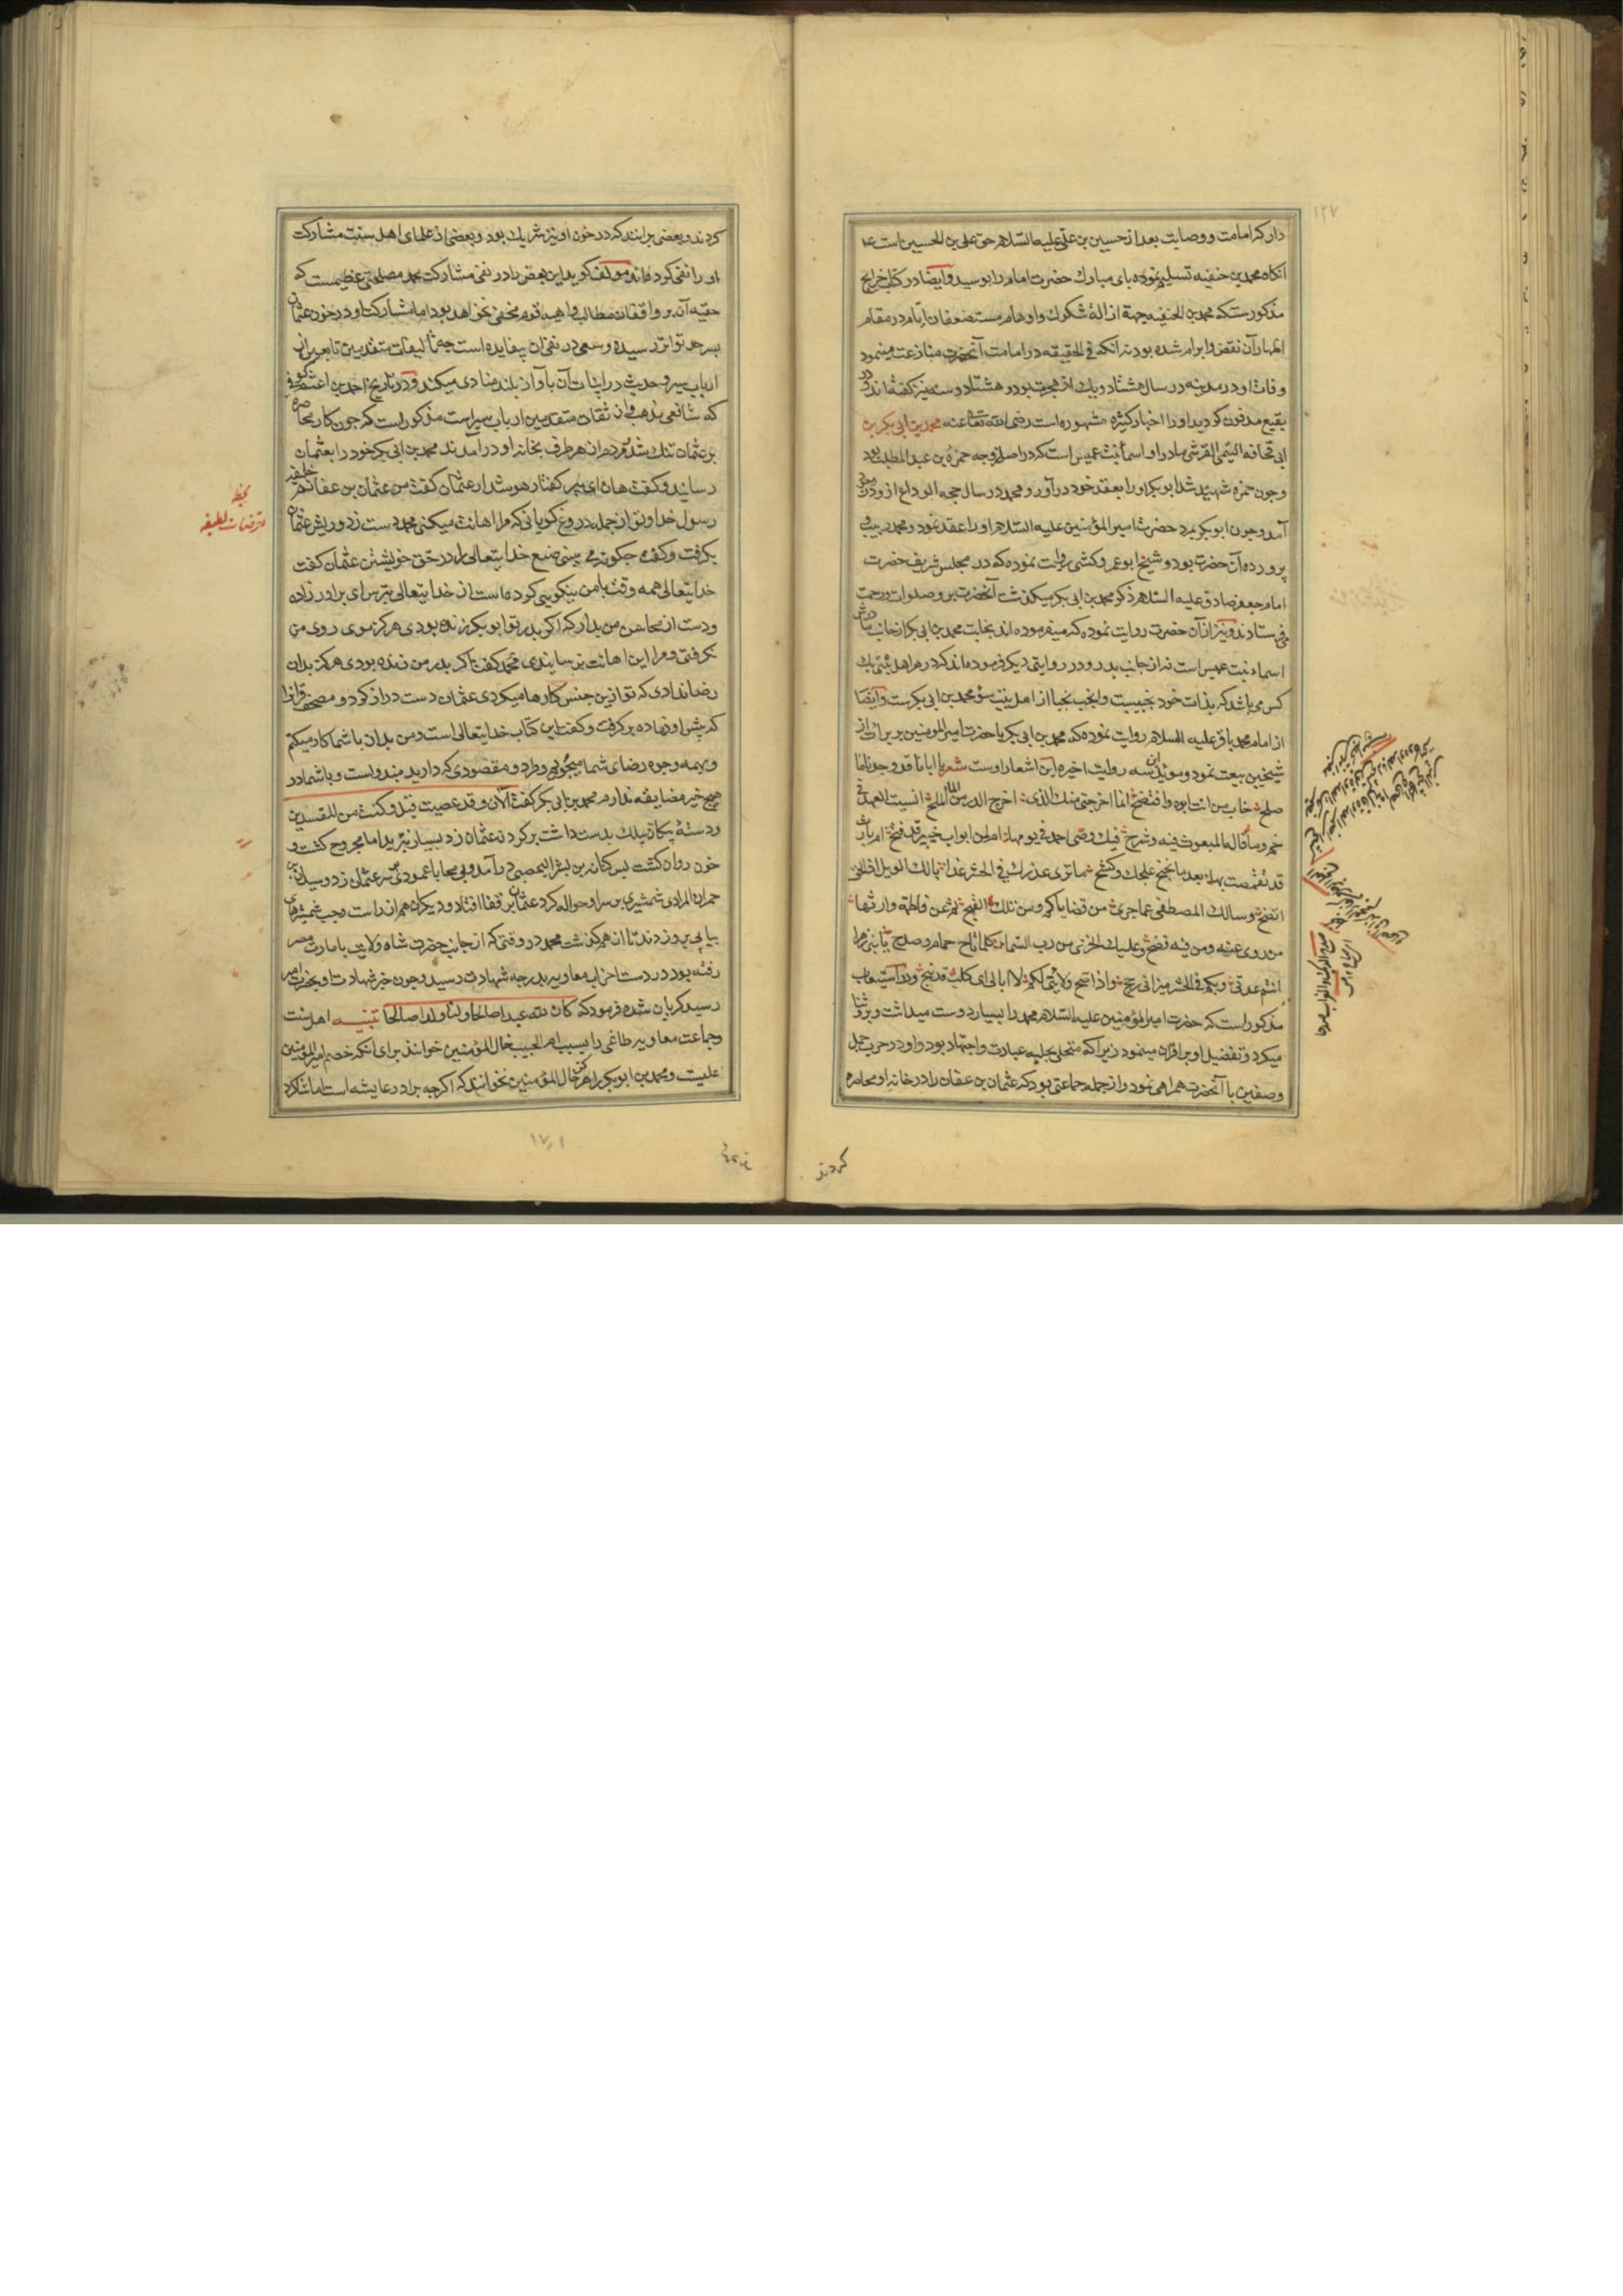 ۱۲۷
دار که امامت و وصایت بعد از حسین بن علی علیه السلام حق علی بن الحسین است
آنکاه محمد بن حنفیه تسلیم نموده پای مبارک حضرت امام را بوسید وایضا در کتاب خرایج
مذکورست که محمد بن الحنفیه جهة ازالۀ شکوک و اوهام مستضعفان ایام در مقام
اظهار آن نقض و ابرام شده بود نه آنکه فی الحقیقه در امامت آنحضرت منازعت مینمود
وفات او در مدینه در سال هشتاد ویک از هجرت بود و هشتاد و سه نیز کفته اند و در
بقیع مدفون کردید او را اخبار کثیره مشهوره است رضی الله تعالی عنه محمد بن ابی بکر بن
ابی قحافة التیمی القرشی مادر او اسماء بنت عمیس است که در اصل زوجه حمزة بن عبد المطلب بود
وچون حمزه شهید شد ابوبکر او را بعقد خود در آورد و محمد در سال حجه الوداع از و در وجود
آمد وچون ابوبکر بمرد حضرت امیر المؤمنین علیه السلام او را عقد نمود و محمد ربیب و
پرورده آن حضرت بود و شیخ ابو عمرو کشی روایت نموده که در مجلس شریف حضرت
امام جعفر صادق علیه السلام ذکر محمد بن ابی بکر میکذشت آنحضرت بر و صلوات و رحمت
می فرستادند ونیز از آن حضرت روایت نموده که میفرموده اند نجابت محمد بن ابی بکر از جانب مادرش
اسماء بنت عمیس است نه از جانب پدر و در روایتی دیکر فرموده اند که در هر اهل بیتی یک
کس می باشد که بذات خود نجیبست وانجب نجبا از اهل بیت سوء محمد بن ابی بکرست وایضا
از امام محمد باقر علیه السلام روایت نموده که محمد بن ابی بکر با حضرت امیر المومنین بر برائت از
شیخین بیعت نمود و موید این روایت اخیره این اشعار اوست شعر یا ابانا قد وجدنا ما
صلح خاب من انت ابوه وافتضح انما اخرجنی منک الذی اخرج الدر من الماء الملح انسیت العهد فی
خم وما قاله المبعوث فیه وشرح فیک وصی احمد فی یومها ام لمن ابواب خیبر قد فتح ام بارث
قد تقمصت بها بعد ما یحتج علجک وکشح ما تری عذرک فی الحشر غدا یا لک الویل اذا الحق
اتضح وسالک المصطفی عما جری من قضایاکم ومن تلک القبح ثم عن فاطمة وارثها
من روی عنه ومن فیه فضح وعلیک الخزی من رب السماء کلما ناح حمام وصدح یا بنی زهرا
انتم عدتی وبکم فی الحشر میزانی رجح واذا صح ولائی لکم لا ابالی ای کلب قد نبح ودر استیعاب
مذکور است که حضرت امیر المؤمنین علیه السلام محمد را بسیار دوست میداشت و برو ثنا
میکرد و تفضیل او بر اقران مینمود زیرا که متحلی بحلیه عبادت و اجتهاد بود و او در حرب جمل
وصفین با آنحضرت همراهی نمود و از جمله جماعتی بود که عثمان بن عفان را در خانه او محاصره
کردند
کردند و بعضی برانند که در خون او نیز شریک بود و بعضی از علمای اهل سنت مشارکت
او را نفی کرده اند مولف کوید این بعض را در نفی مشارکت محمد مصلحتی عظیمست که
حقیه آن بر واقفان مطالب واهیه قوم مخفی نخواهد بود اما مشارکت او در خون عثمان
بسرحد تواتر رسیده و سعی در نفی آن بیفایده است چه تألیفات متقدمین تابعین از
ارباب سیر و حدیث در اثبات آن بآواز بلند منادی میکند و در تاریخ احمد بن اعثم کوفی
که شافعی مذهب و از ثقات متقدمین ارباب سیر است مذکور است که چون کار محاصره
بر عثمان تنک شد و مردمان از هر طرف بخانه او در آمدند محمد بن ابی بکر خود را بعثمان
رسانید و کفت هان ای پیر کفتار هوشدار عثمان کفت من عثمان بن عفانم خلیفه
رسول خدا و تو از جمله دروغ کویانی که مرا اهانت میکنی محمد دست زد و ریش عثمان
بکرفت و کفت چکونه می بینی صنع خدا یتعالی را در حق خویشتن عثمان کفت
خدا یتعالی همه وقت با من نیکویی کرده است از خدا یتعالی بترس ای برادر زاده
ودست از محاسن من بدار که اکر پدر تو ابوبکر زنده بودی هرکز موی روی من
نکرفتی و مرا این اهانت نرسانیدی محمد کفت اکر پدر من زنده بودی هرکز بدان
رضا ندادی که تو ازین جنس کارها میکردی عثمان دست دراز کرد و مصحف قرآنرا
که پیش او نهاده بر کرفت و کفت این کتاب خدا یتعالی است و من بدان با شما کار میکنم
وبهمه وجوه رضای شما میجویم و مراد و مقصودی که دارید مبذولست و با شما در
هیچ خیر مضایقه ندارم محمد بن ابی بکر کفت الآن وقد عصیت قبل وکنت من المفسدین
و دستۀ پیکان پلک بدست داشت بر کردن عثمان زد بسیار نبرید اما مجروح کشت و
خون روان کشت پس کنانه بن بشر الیحصبی در آمد و بی محابا عمودی بر سر عثمان زد و سیدان بن
حمران المرادی شمشیری بر سر او حواله کرد عثمان بر قفا افتاد و دیکران هم از راست و چپ شمشیرهای
پیاپی برو زدند تا از هم کذشت محمد در وقتی که از جانب حضرت شاه ولایت بامارت مصر
رفته بود در دست احزاب معاویه بدرجه شهادت رسید و چون خبر شهادت او بحضرت امیر
رسید کریان شده فرمود که کان لله عبدا صالحا ولنا ولدا صالحا تنبیه اهل سنت
وجماعت معاویه طاغی را بسبب ام الحبیبه خال المؤمنین خوانند برای آنکه خصم امیر المؤمنین
علیست و محمد بن ابو بکر را هرکز خال المؤمنین نخوانند که اکرچه برادر عایشه است اما شاکرد
لطیفه
۱۷۱